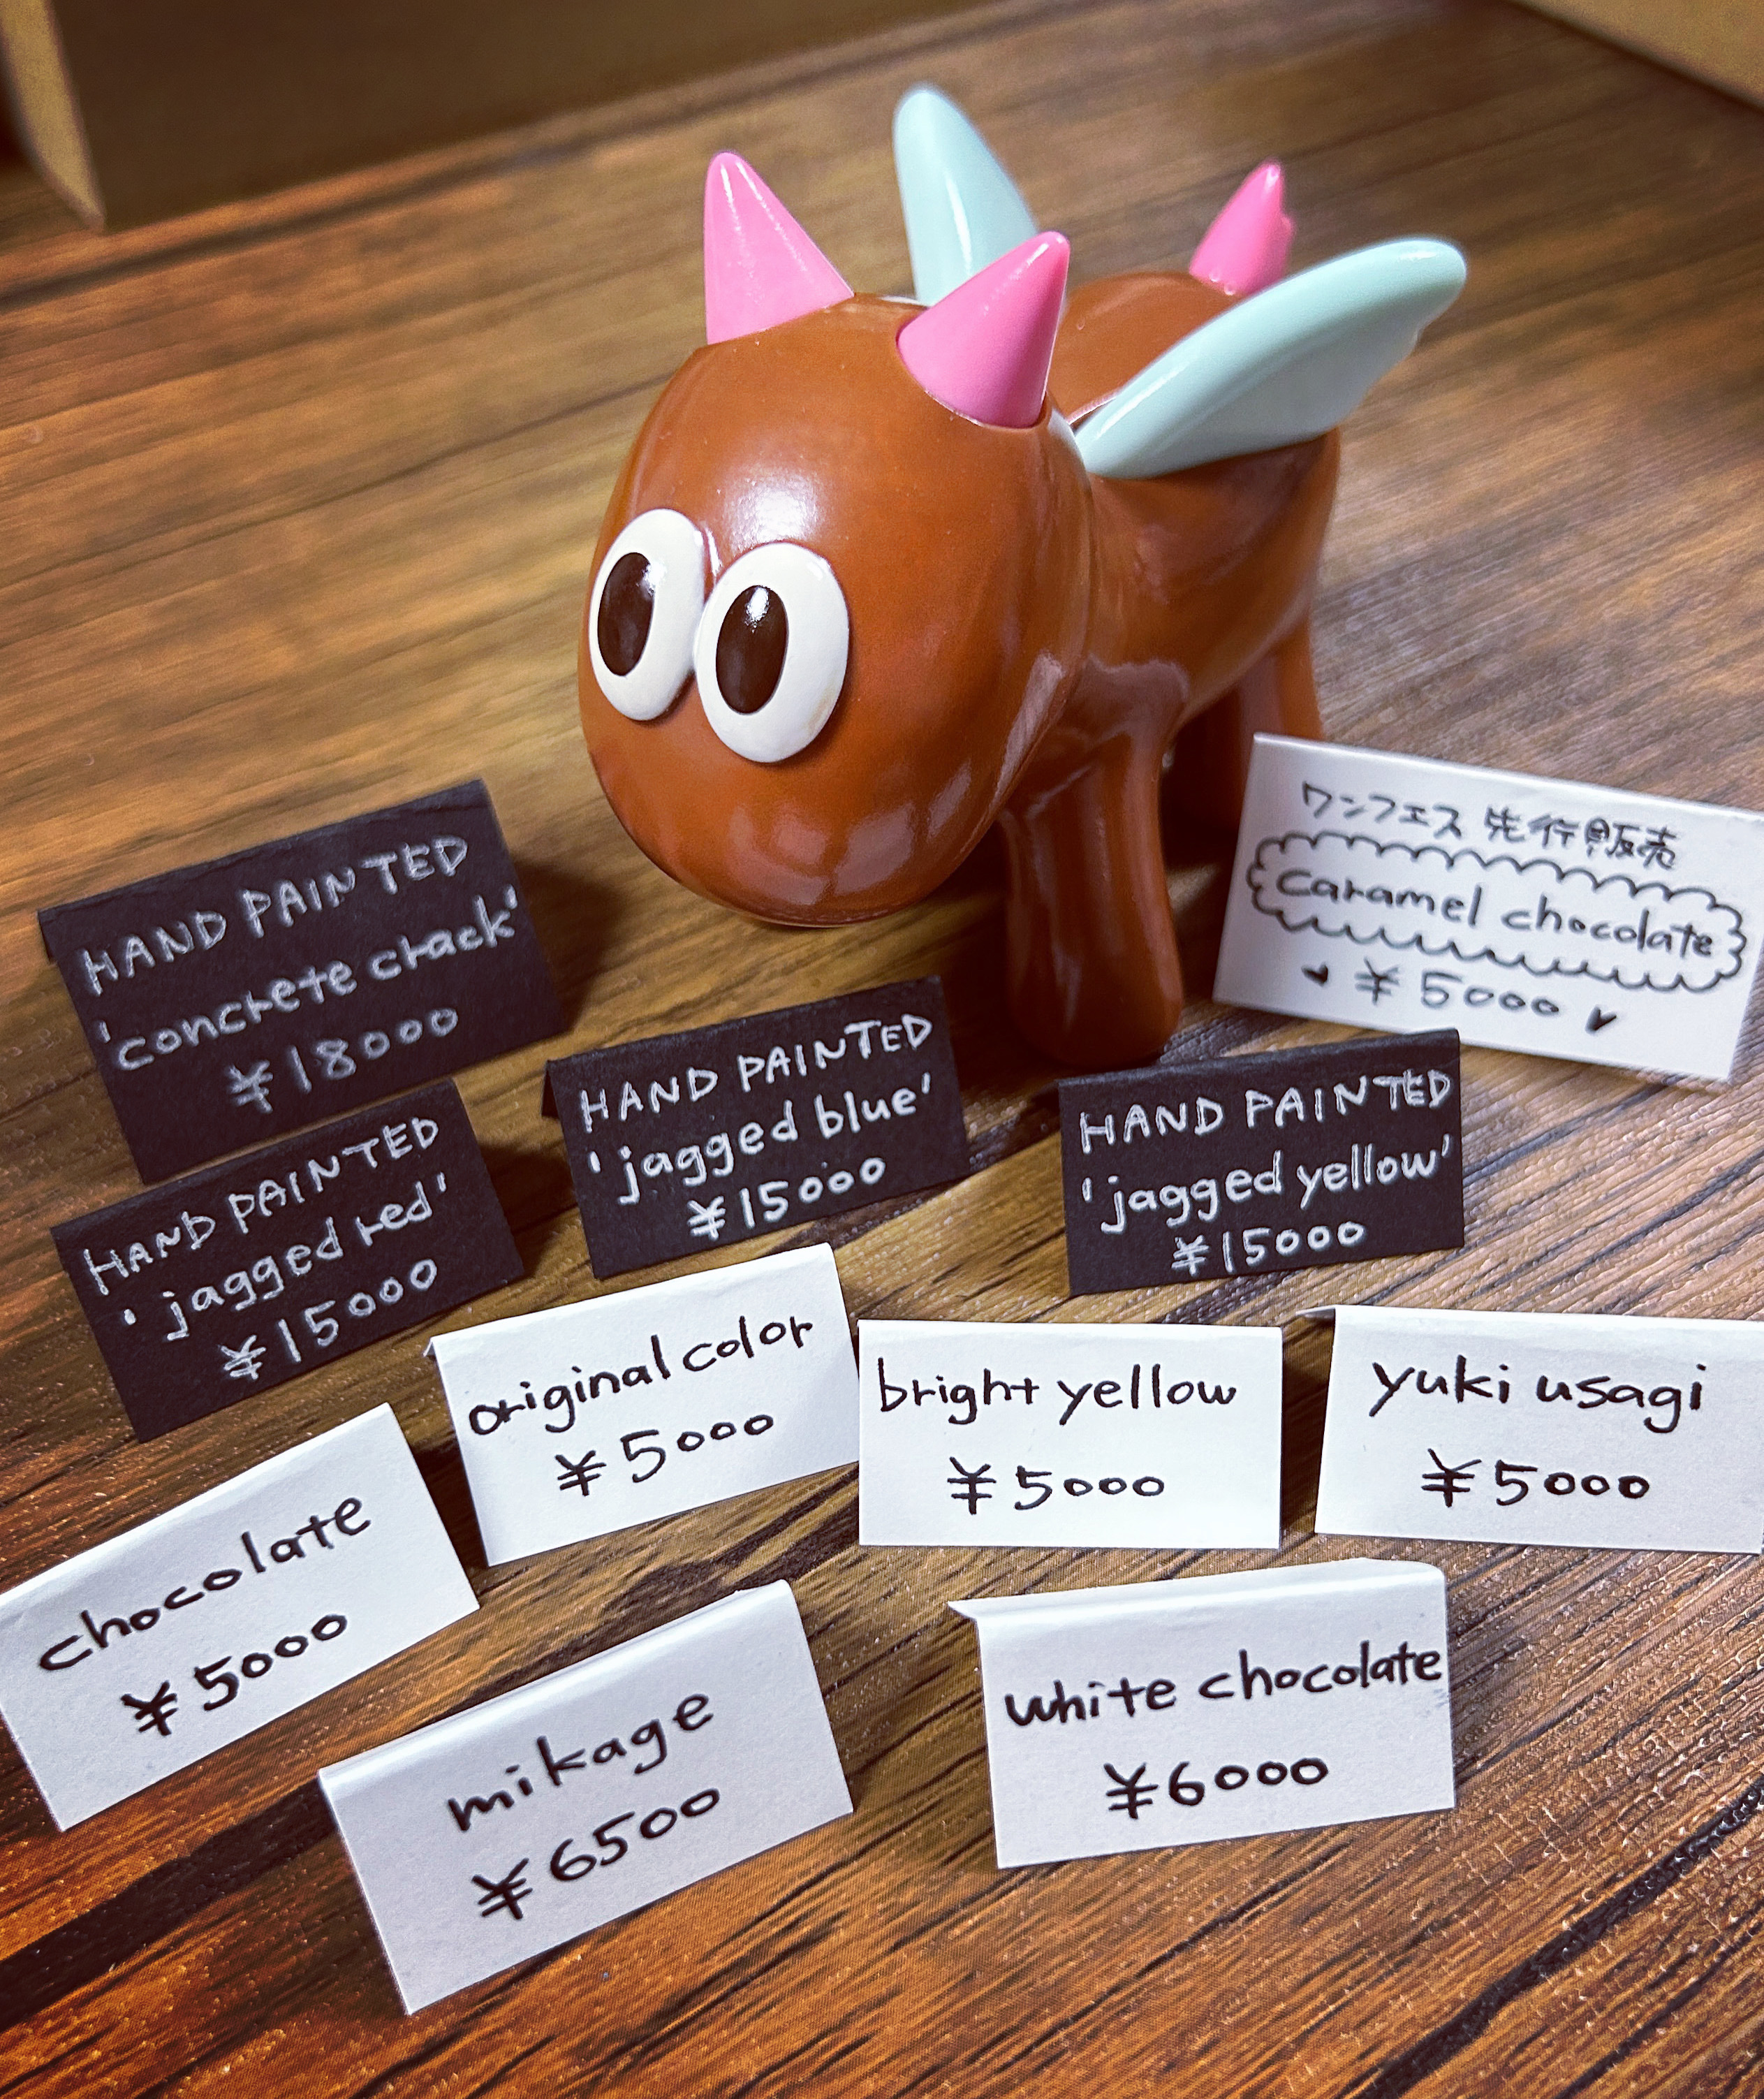 ワンフェス 先行販売
caramel chocolate
¥5000
HAND PAINTED
'concrete crack'
¥18000
HAND PAINTED
'jagged blue'
¥15000
HAND PAINTED
'jagged yellow'
¥15000
HAND PAINTED
'jagged red'
¥15000
original color
¥5000
bright yellow
¥5000
yuki usagi
¥5000
chocolate
¥5000
mikage
¥6500
white chocolate
¥6000